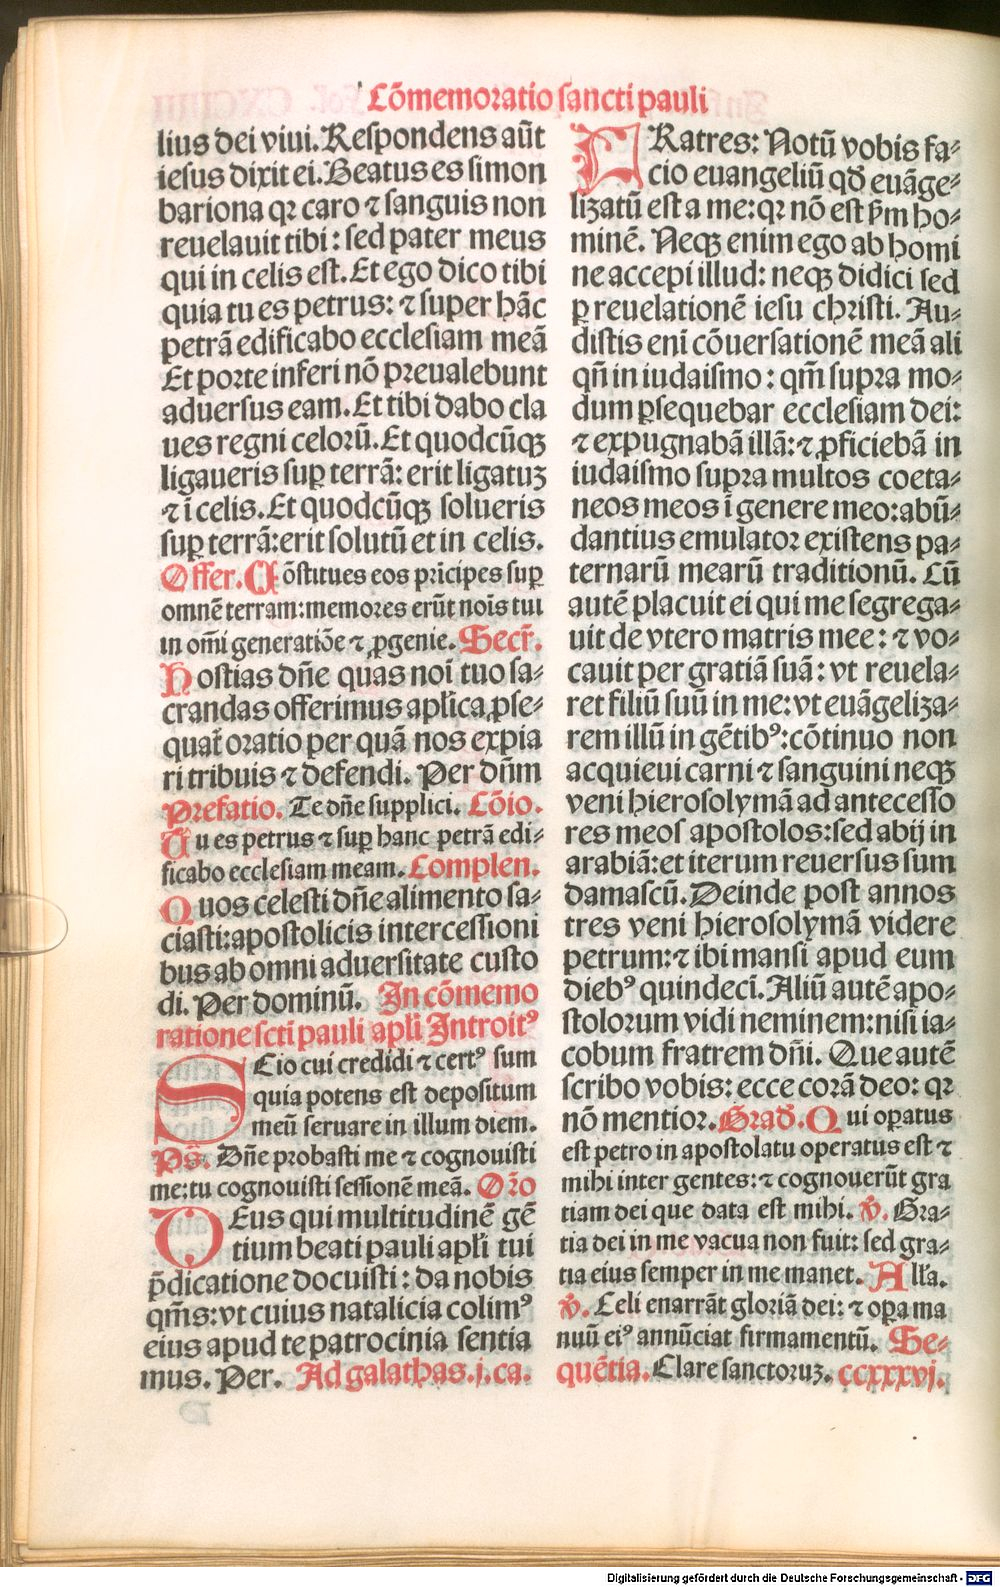 Cōmemoratio sancti pauli
lius dei viui. Respondens aūt
iesus dixit ei. Beatus es simon
bariona qꝛ caro ⁊ sanguis non
reuelauit tibi: sed pater meus
qui in celis est. Et ego dico tibi
quia tu es petrus: ⁊ super hāc
petrā edificabo ecclesiam meā
Et porte inferi nō preualebunt
aduersus eam. Et tibi dabo cla
ues regni celorū. Et quodcūqꝫ
ligaueris suꝑ terrā: erit ligatuꝫ
⁊ ī celis. Et quodcūqꝫ solueris
suꝑ terrā: erit solutū et in celis.
Offer. Cōstitues eos prīcipes suꝑ
omnē terram: memores erūt noīs tui
in om̄i generatiōe ⁊ ꝓgenie. Secr̄.
Hostias dn̄e quas noī tuo sa⸗
crandas offerimus apl̄ica ꝓse⸗
quat̄ oratio per quā nos expia
ri tribuis ⁊ defendi. Per dn̄m
Prefatio. Te dn̄e supplici. Cōio.
Tu es petrus ⁊ suꝑ hanc petrā edi⸗
ficabo ecclesiam meam. Complen.
Quos celesti dn̄e alimento sa⸗
ciasti: apostolicis intercessioni
bus ab omni aduersitate custo
di. Per dominū. In cōmemo
ratione scti pauli apl̄i Introitꝰ
SCio cui credidi ⁊ certꝰ sum
quia potens est depositum
meū seruare in illum diem.
Ps̄. Dn̄e probasti me ⁊ cognouisti
me: tu cognouisti sessionē meā. Or̄o
DEus qui multitudinē gē
tium beati pauli apl̄i tui
p̄dicatione docuisti: da nobis
qm̄s: vt cuius natalicia colimꝰ
eius apud te patrocinia sentia
mus. Per. Ad galathas. j. ca.
FRatres: Notū vobis fa⸗
cio euangeliū qd̄ euāge⸗
lizatū est a me: qꝛ nō est s̄m ho⸗
minē. Neqꝫ enim ego ab homi
ne accepi illud: neqꝫ didici sed
ꝑ reuelationē iesu christi. Au⸗
distis eni cōuersationē meā ali
qn̄ in iudaismo: qm̄ supra mo⸗
dum ꝑsequebar ecclesiam dei:
⁊ expugnabā illā: ⁊ ꝓficiebā in
iudaismo supra multos coeta⸗
neos meos ī genere meo: abū⸗
dantius emulator existens pa⸗
ternarū mearū traditionū. Cū
autē placuit ei qui me segrega⸗
uit de vtero matris mee: ⁊ vo⸗
cauit per gratiā suā: vt reuela⸗
ret filiū suū in me: vt euāgeliza⸗
rem illū in gētibꝰ: cōtinuo non
acquieui carni ⁊ sanguini neqꝫ
veni hierosolymā ad antecesso
res meos apostolos: sed abij in
arabiā: et iterum reuersus sum
damascū. Deinde post annos
tres veni hierosolymā videre
petrum: ⁊ ibi mansi apud eum
diebꝰ quindeci. Aliū autē apo⸗
stolorum vidi neminem: nisi ia⸗
cobum fratrem dn̄i. Que autē
scribo vobis: ecce corā deo: qꝛ
nō mentior. Grad̄. Qui oꝑatus
est petro in apostolatu operatus est ⁊
mihi inter gentes: ⁊ cognouerūt gra
tiam dei que data est mihi. v̄. Gra⸗
tia dei in me vacua non fuit: sed gra⸗
tia eius semper in me manet. All̄a.
v̄. Celi enarrāt gloriā dei: ⁊ oꝑa ma
nuū eiꝰ annūciat firmamentū. Se⸗
quētia. Clare sanctoruꝫ. ccxxxvj.
Digitalisierung gefördert durch die Deutsche Forschungsgemeinschaft - DFG